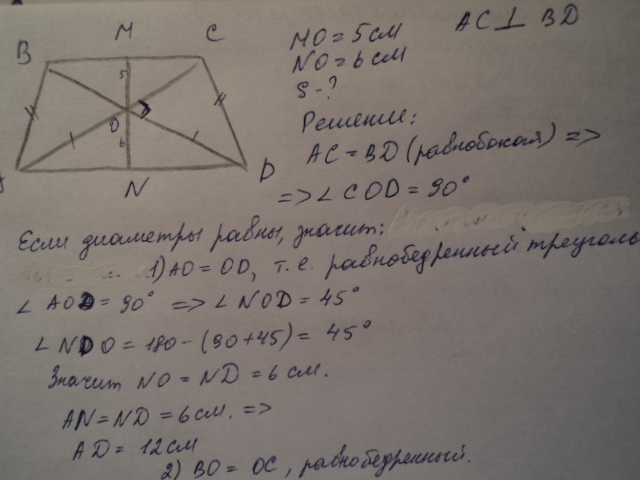 M
B
C
5
O
6
N
D
MO = 5 см
AC ⊥ BD
NO = 6 см
S - ?
Решение:
AC = BD (равнобокая) =>
=> ∠COD = 90°
Если диаметры равны, значит:
1) AO = OD, т.е. равнобедренный треуголь
∠AOD = 90° => ∠NOD = 45°
∠NDO = 180 - (90 + 45) = 45°
Значит NO = ND = 6 см.
AN = ND = 6 см. =>
AD = 12 см
2) BO = OC, равнобедренный.